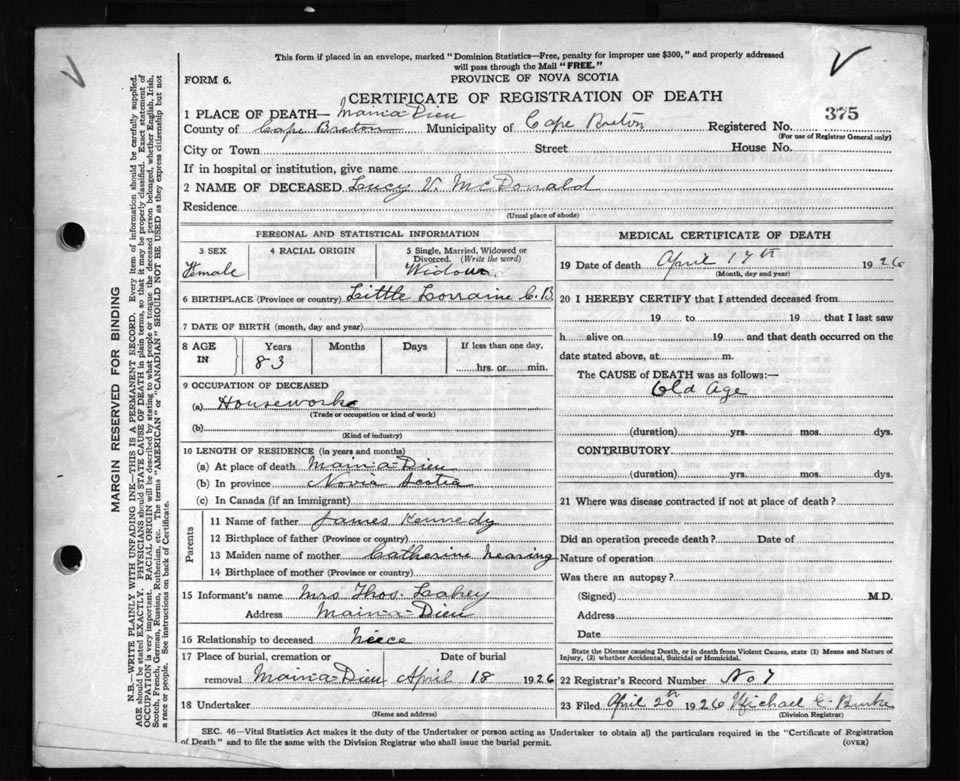 This form if placed in an envelope, marked "Dominion Statistics—Free, penalty for improper use $300," and properly addressed
will pass through the Mail "FREE."
FORM 6.
PROVINCE OF NOVA SCOTIA
CERTIFICATE OF REGISTRATION OF DEATH
1 PLACE OF DEATH— Main-a-Dieu
County of Cape Breton Municipality of Cape Breton Registered No. 375
(For use of Registrar General only)
City or Town Street House No.
If in hospital or institution, give name
2 NAME OF DECEASED Lucy V. McDonald
Residence
(Usual place of abode)
PERSONAL AND STATISTICAL INFORMATION
3 SEX 4 RACIAL ORIGIN 5 Single, Married, Widowed or
Divorced. (Write the word)
Female Widow
6 BIRTHPLACE (Province or country) Little Lorraine C.B.
7 DATE OF BIRTH (month, day and year)
8 AGE IN Years Months Days If less than one day,
83 hrs. or min.
9 OCCUPATION OF DECEASED
(a) Housework
(Trade or occupation or kind of work)
(b)
(Kind of industry)
10 LENGTH OF RESIDENCE (in years and months)
(a) At place of death Main-a-Dieu
(b) In province Novia Scotia
(c) In Canada (if an immigrant)
Parents
11 Name of father James Kennedy
12 Birthplace of father (Province or country)
13 Maiden name of mother Catherine Nearing
14 Birthplace of mother (Province or country)
15 Informant's name Mrs Thos. Lahey
Address Main-a-Dieu
16 Relationship to deceased Neece
17 Place of burial, cremation or Date of burial
removal Main-a-Dieu April 18 1926
18 Undertaker
(Name and address)
MEDICAL CERTIFICATE OF DEATH
19 Date of death April 17th 1926
(Month, day and year)
20 I HEREBY CERTIFY that I attended deceased from
19 to 19 that I last saw
h alive on 19 and that death occurred on the
date stated above, at m.
The CAUSE of DEATH was as follows:—
Old Age
(duration) yrs. mos. dys.
CONTRIBUTORY
(duration) yrs. mos. dys.
21 Where was disease contracted if not at place of death?
Did an operation precede death? Date of
Nature of operation
Was there an autopsy?
(Signed) M.D.
Address
Date
State the Disease causing Death, or in death from Violent Causes, state (1) Means and Nature of
Injury, (2) whether Accidental, Suicidal or Homicidal.
22 Registrar's Record Number No 7
23 Filed April 20th 1926 Michael C. Burke
(Division Registrar)
SEC. 46—Vital Statistics Act makes it the duty of the Undertaker or person acting as Undertaker to obtain all the particulars required in the "Certificate of Registration
of Death" and to file the same with the Division Registrar who shall issue the burial permit. (OVER)
MARGIN RESERVED FOR BINDING
N.B.—WRITE PLAINLY WITH UNFADING INK—THIS IS A PERMANENT RECORD. Every item of information should be carefully supplied.
AGE should be stated EXACTLY. PHYSICIANS should STATE CAUSE OF DEATH in plain terms, so that it may be properly classified. Exact statement of
OCCUPATION is very important. RACIAL ORIGIN will be described by stating to what people or tongue the deceased person belonged, whether English, Irish,
Scotch, French, German, Russian, Ruthenian, etc. The terms "AMERICAN" or "CANADIAN" SHOULD NOT BE USED as they express citizenship but not
a race or people. See instructions on back of Certificate.